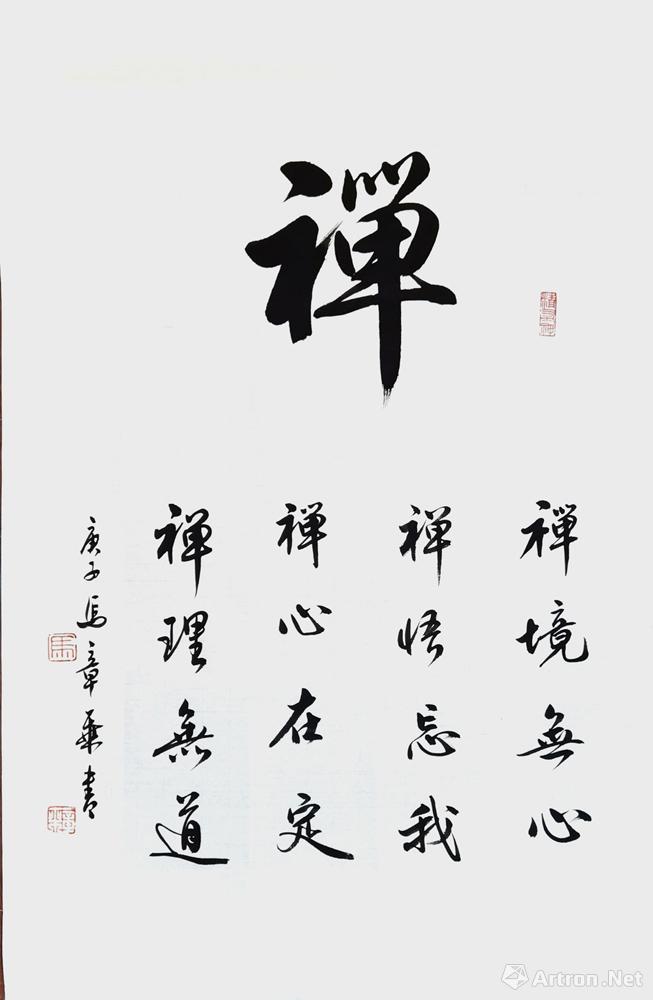 禪
禪境無心
禪悟忘我
禪心在定
禪理無道
庚子馬章乘書
馬
Artron.Net